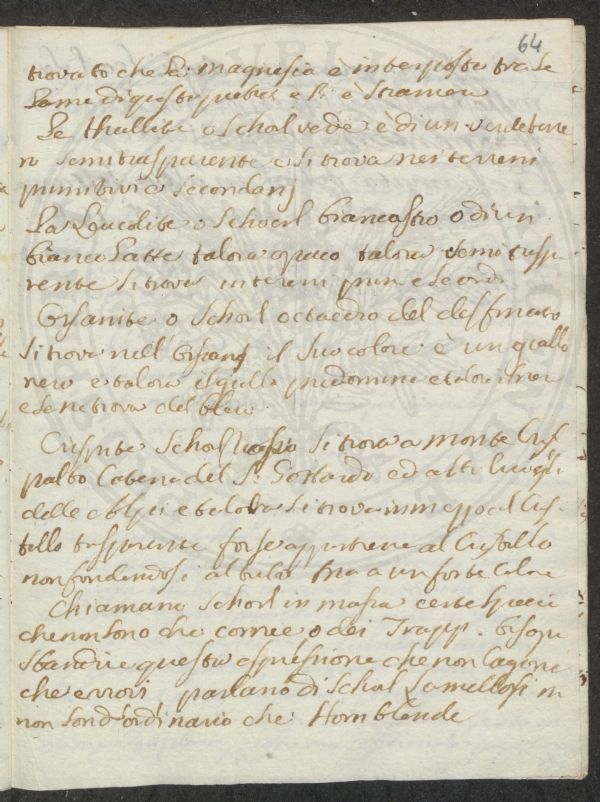 64
trovato che la magnesia è interposta tra le
lame di questa pietra e
La Thallite o Schorl verde è di un verde tene
ro semitrasparente e si trova nei terreni
primitivi e secondarj
La Leucolite o Schoerl biancastro o di un
bianco latte talora opaco talora semitraspa
rente si trova in terreni prim e second
Oisanite o Schorl octaedro del delfinato
si trova nell' Oisans il suo colore è un giallo
nero e talora il giallo predomina e talora il nero
e se ne trova del bleu
Crispite Schorl rosso si trova a monte Cris
palto Catena del S. Gottardo ed altri luoghi
delle Alpi e talora si trova in mezzo al Cris
tallo trasparente forse appartiene al Cristallo
non fondendosi al tubo ma a un forte calore
Chiamano Schorl in massa certe specie
che non sono che cornee o dei Trapp. bisogna
sbandire questa espressione che non cagiona
che errori parlano di Schorl Lamellosi m
non sono d'ordinario che Hornblende